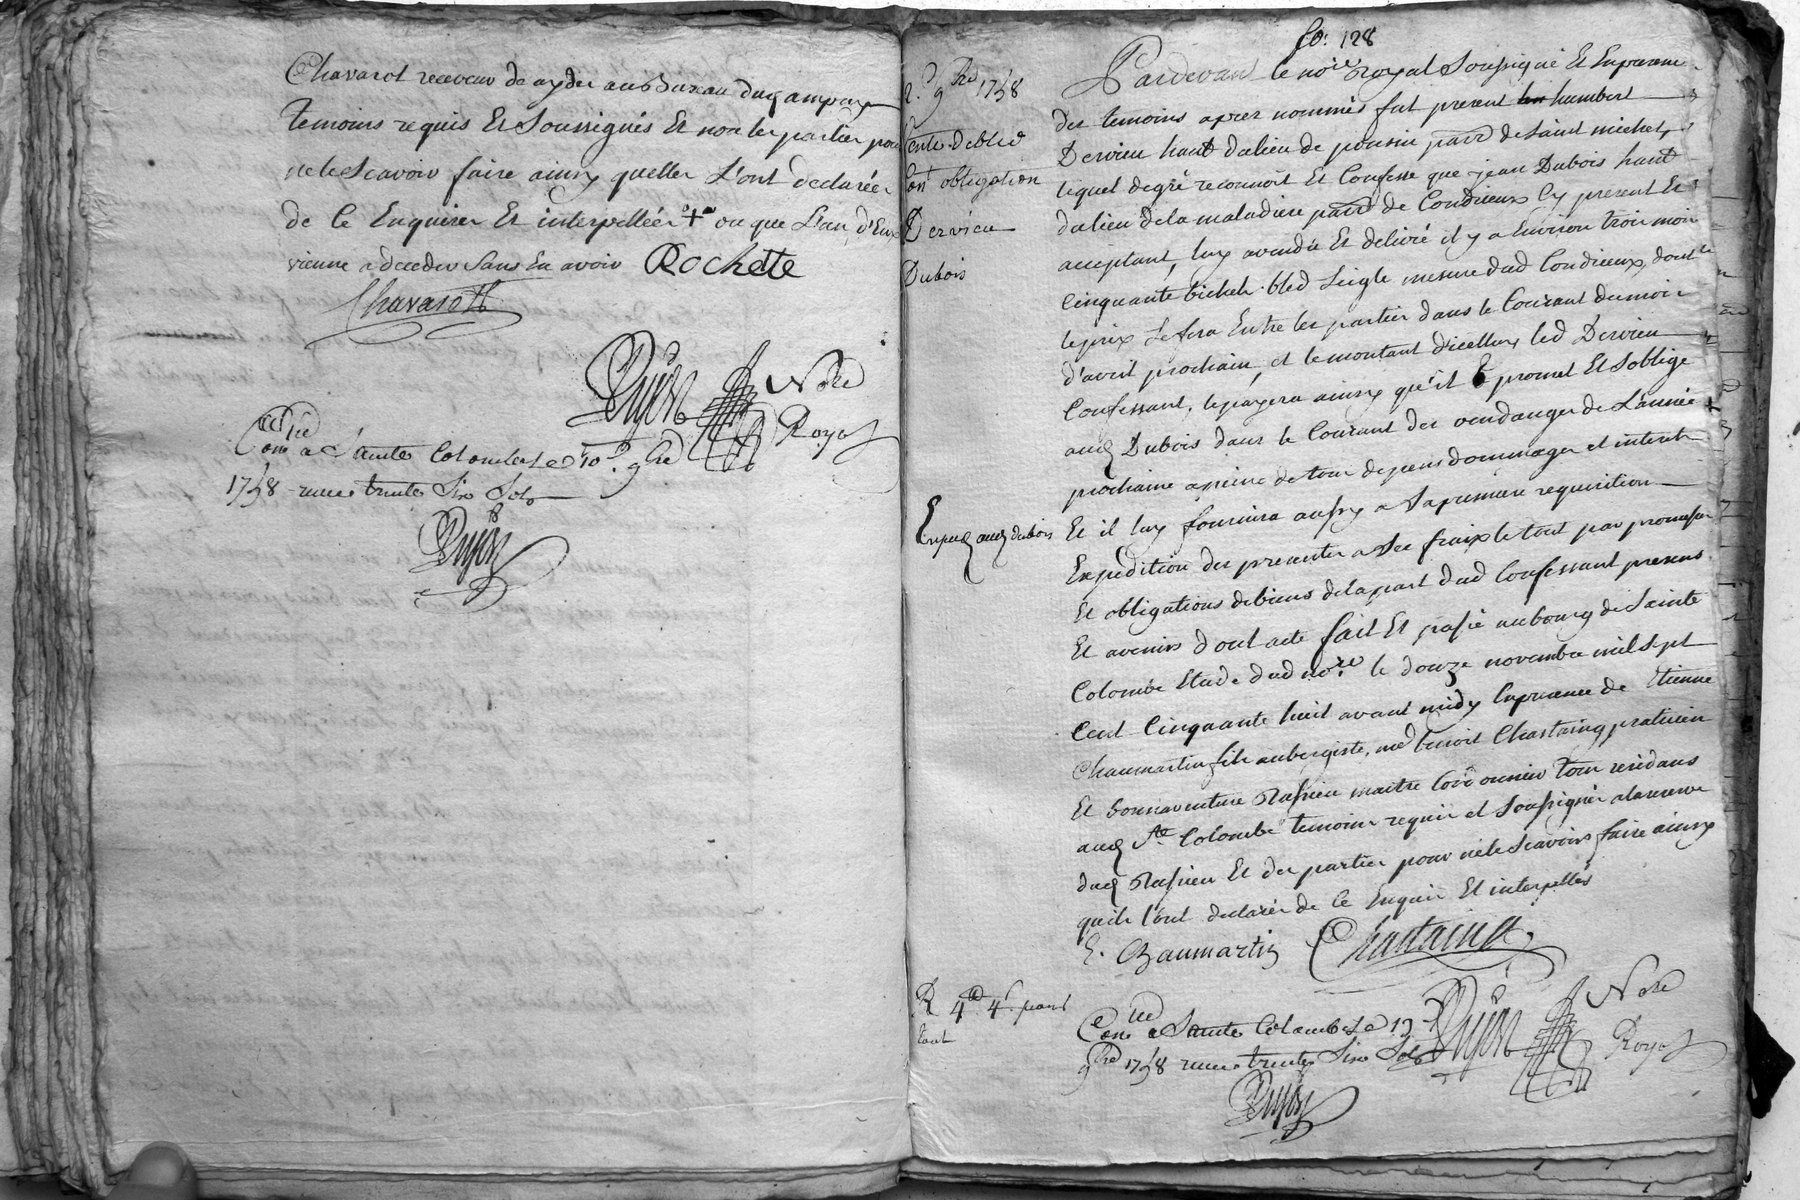 Chavarot receveur de aydes au Bureau dud ampuy
temoins requis Et Soussignés Et non les parties pour
ne le Scavoir faire ainsy quelles L'ont declarées
de ce Enquises Et interpellées ou que L'un d'Eux
vienne a deceder Sans En avoir Rochette
Chavarot
Dujon Nore
Royal
Conllé a Sainte Colombe Le 10e 9bre
1758 reçu trente Six Sols
Dujon
fo: 128
12e 9bre 1758
Vente de bled
Cont obligation
Dervieu
Dubois
Pardevant le nore Royal Soussigné Et En presence
des temoins apres nommés fut present humbert
Dervieu habt du lieu de poussin parr de Saint michel,
lequel de gré reconnoit Et Confesse que jean Dubois habt
du lieu de la maladiere parr de Condrieux Cy present Et
acceptant, luy a vendu Et delivré il y a Environ trois mois
Cinquante bichets bled Seigle mesure dud Condrieux, dont
le prix Se fera Entre les parties dans le Courant du mois
d'avril prochain, et le montant d'icelluy led Dervieu
Confessant, le payera ainsy qu'il promet Et S'oblige
aud Dubois dans le Courant des vendanges de L'année
prochaine a peine de tous depens dommages et interets
Et il luy fournira aussy a Sa premiere requisition
Expedition des presentes a Ses fraix le tout par promesses
Et obligations de biens de la part dud Confessant presens
Et avenirs dont acte fait Et passé au bourg de Sainte
Colombe Etude dud nore le douze novembre mil sept
Cent Cinquante huit avant midy En presence de Etienne
Chaumartin fils aubergiste, me benoit Chastaing praticien
Et bonnaventure Rassieu maitre Cordonnier tous residans
aud Ste Colombe temoins requis et Soussignés a la reserve
dud Rassieu Et des parties pour ne le Scavoir faire ainsy
quils l'ont declarés de Ce Enquis Et interpellés
Expedié aud dubois
E. Chaumartin Chastaing
R 4ll 4s pour
tout
Dujon Nore
Royal
Conllé a Sainte Colombe Le 12e
9bre 1758 reçu trente Six Sols
Dujon